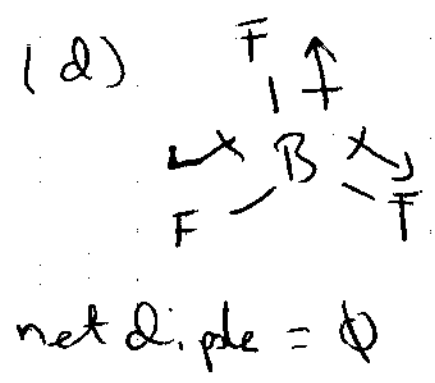 (d)
F
B
F F
net dipole = 0